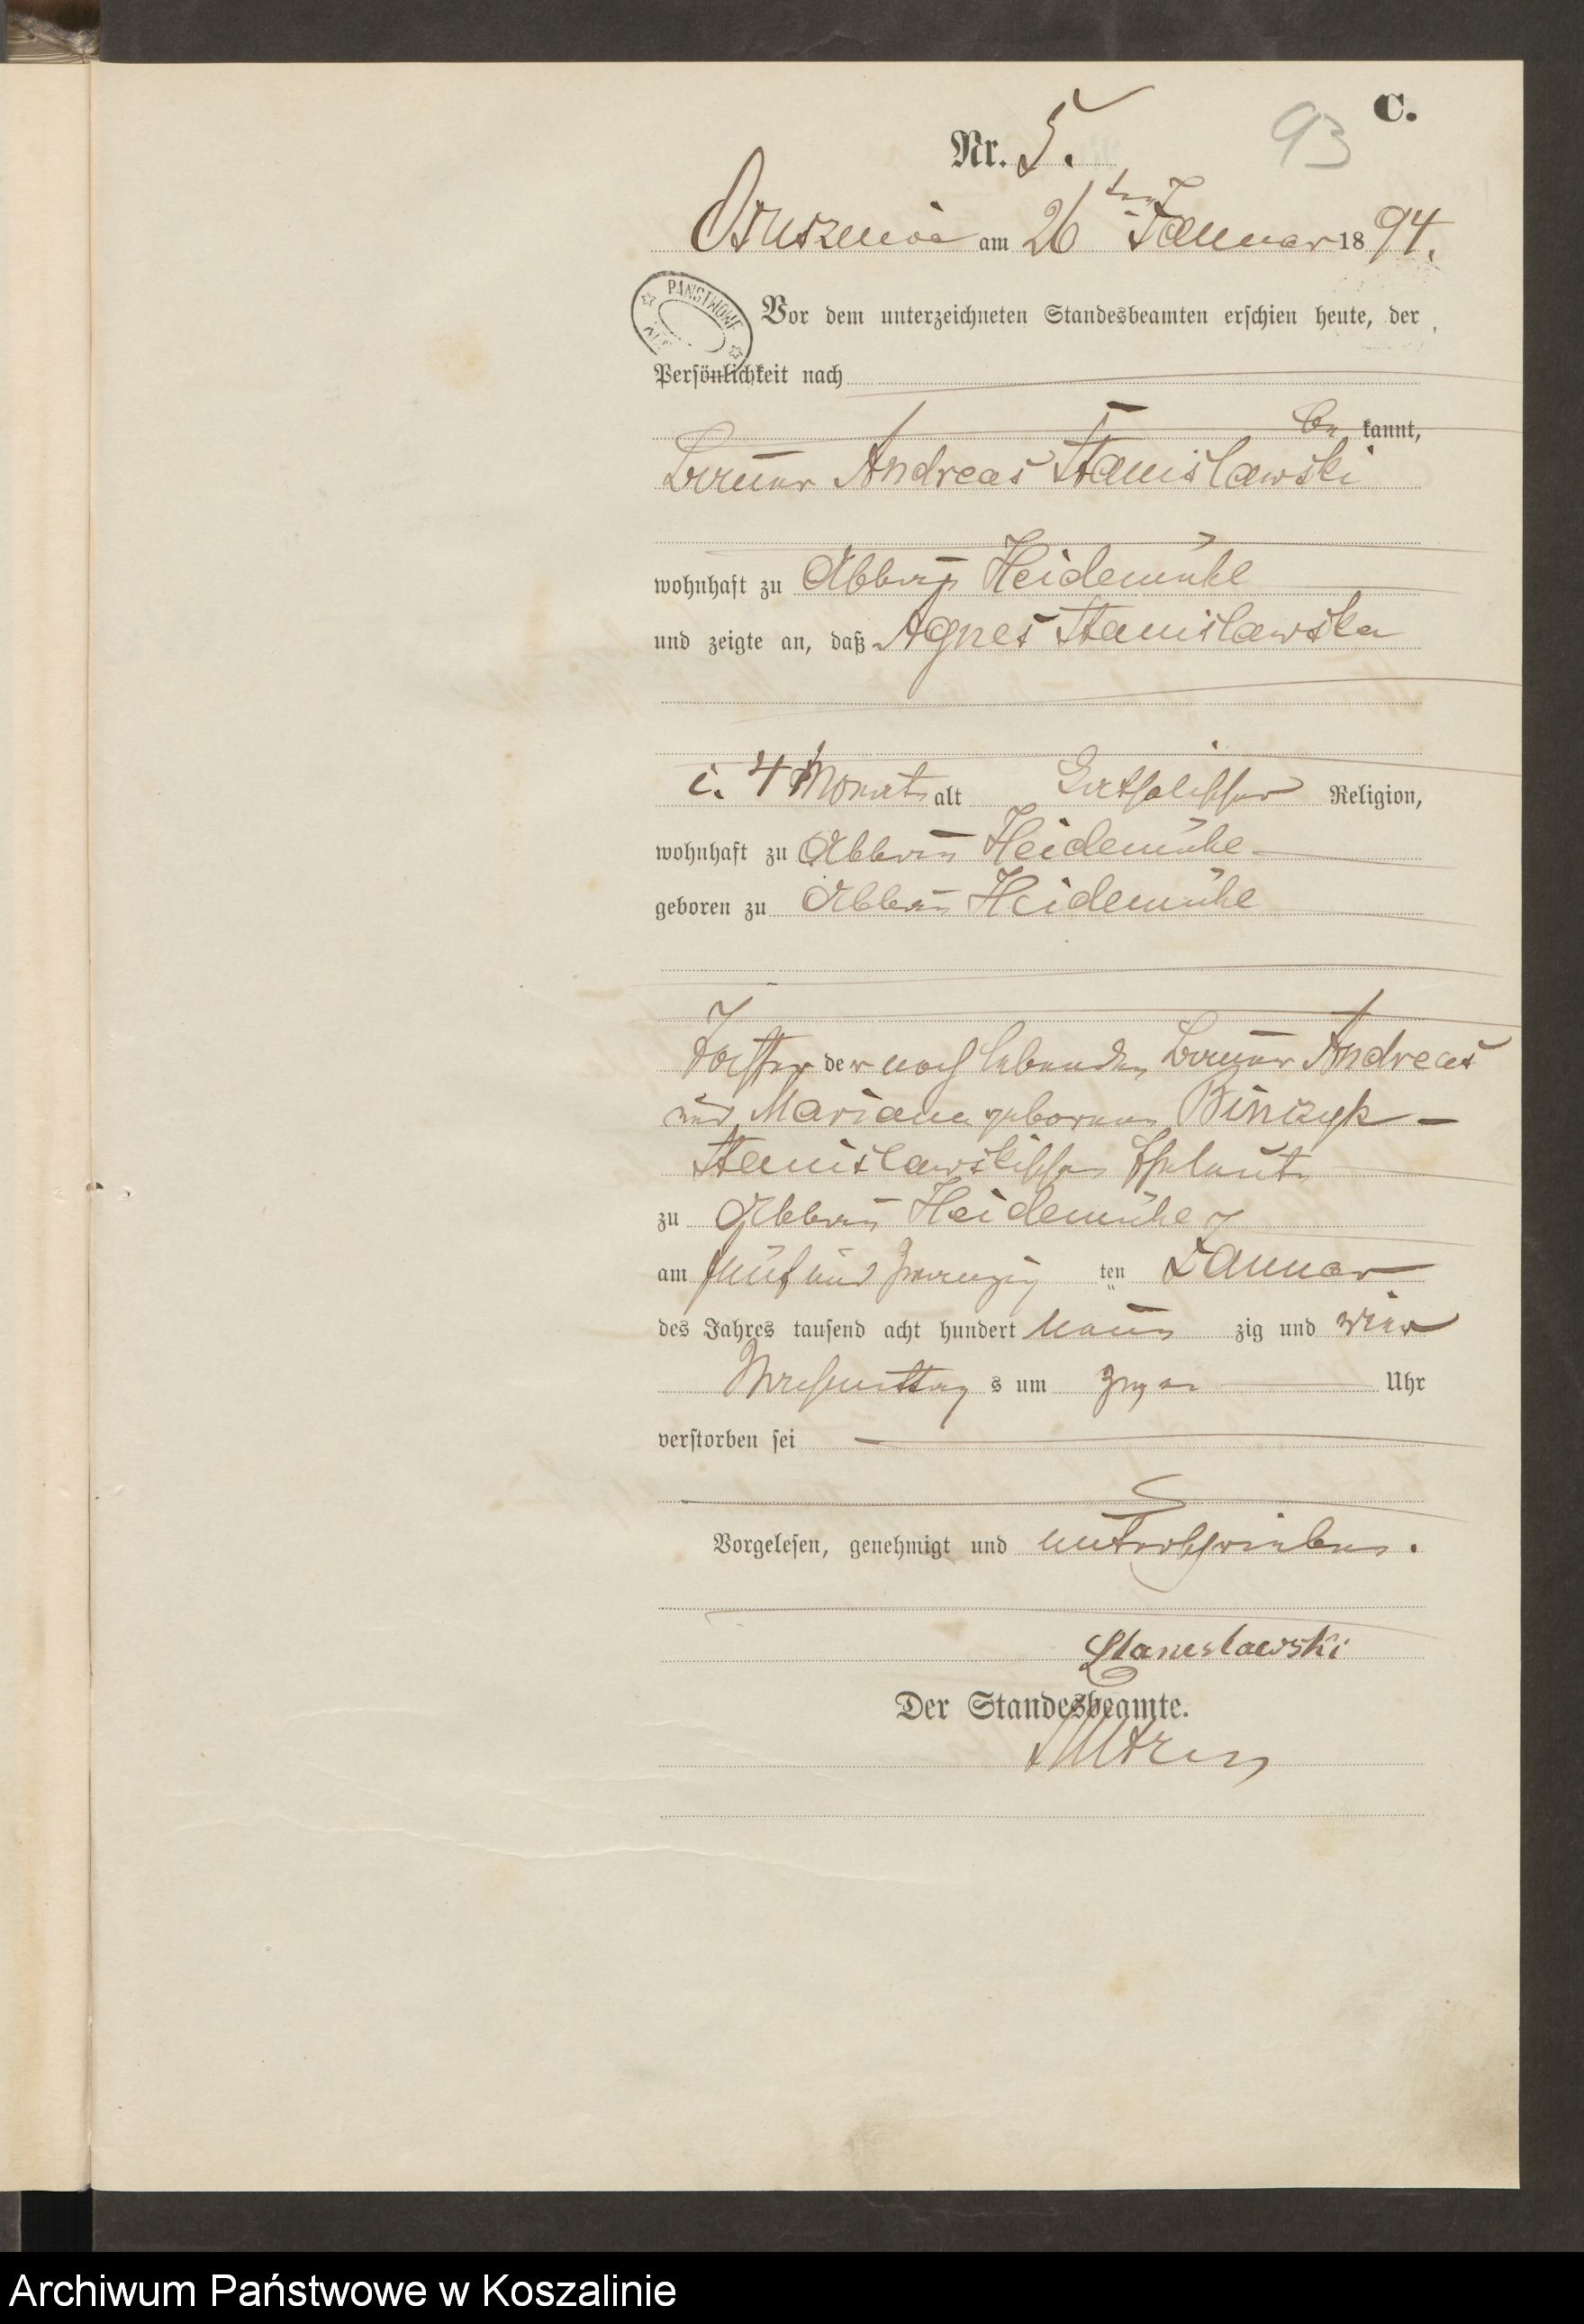 C.
93
Nr. 5.
Ossusznica am 26ten Januar 1894.
PAŃSTWOWE
Vor dem unterzeichneten Standesbeamten erschien heute, der
Persönlichkeit nach
be kannt,
Bauer Andreas Stanislawski
wohnhaft zu Abbau Heidemühl
und zeigte an, daß Agnes Stanislawska
4 Monate alt katholischer Religion,
wohnhaft zu Abbau Heidemühle
geboren zu Abbau Heidemühle
Tochter der noch lebenden Bauer Andreas
und Mariana geborenen Binczyk
Stanislawskischen Eheleute
zu Abbau Heidemühle
am fünf und zwanzig ten Januar
des Jahres tausend acht hundert neun zig und vier
Nachmittag s um zwei Uhr
verstorben sei
Vorgelesen, genehmigt und unterschrieben.
Stanislawski
Der Standesbeamte.
Archiwum Państwowe w Koszalinie